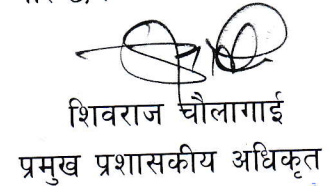 शिवराज चौलागाई
प्रमुख प्रशासकीय अधिकृत